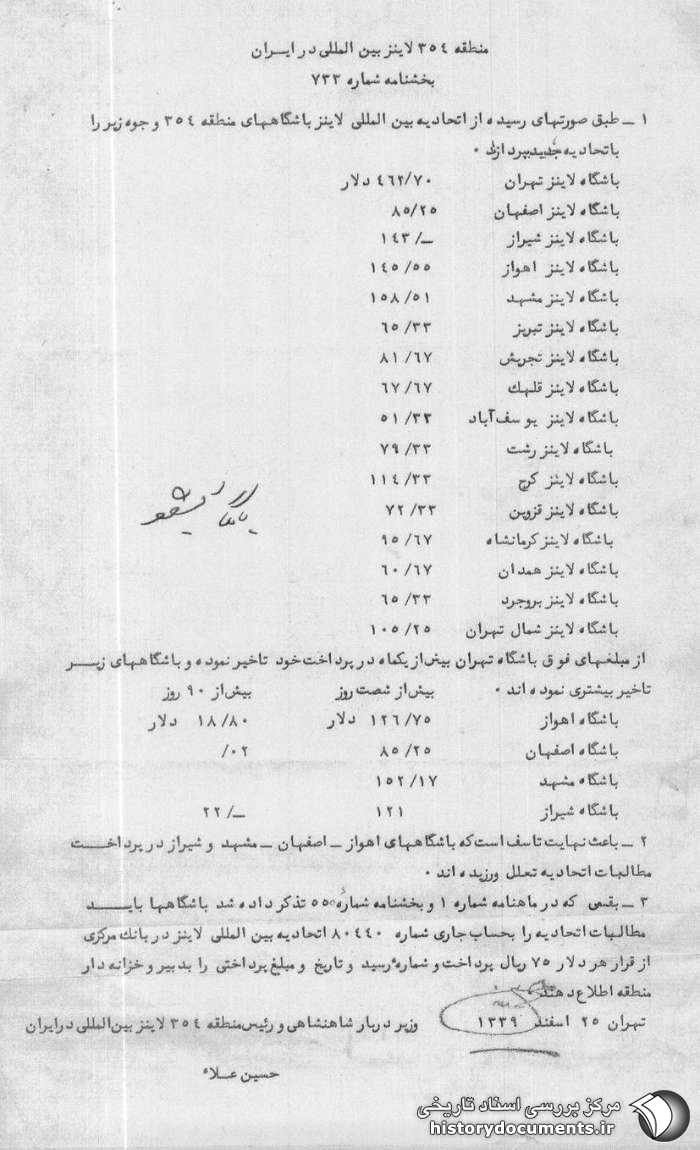 منطقه ۳۵۴ لاینز بین المللی در ایران
بخشنامه شماره ۷۳۳
۱ ـ طبق صورتهای رسیده از اتحادیه بین المللی لاینز باشگاههای منطقه ۳۵۴ وجوه زیر را
باتحادیه بپردازند ۰
باشگاه لاینز تهران ۴۶۲/۷۰ دلار
باشگاه لاینز اصفهان ۸۵/۲۵
باشگاه لاینز شیراز ۱۴۳/ـ
باشگاه لاینز اهواز ۱۴۵/۵۵
باشگاه لاینز مشهد ۱۵۸/۵۱
باشگاه لاینز تبریز ۶۵/۳۳
باشگاه لاینز تجریش ۸۱/۶۷
باشگاه لاینز قلهك ۶۷/۶۷
باشگاه لاینز یوسف‌آباد ۵۱/۳۳
باشگاه لاینز رشت ۷۹/۳۳
باشگاه لاینز کرج ۱۱۴/۳۳
باشگاه لاینز قزوین ۷۲/۳۳
باشگاه لاینز کرمانشاه ۹۵/۶۷
باشگاه لاینز همدان ۶۰/۶۷
باشگاه لاینز بروجرد ۶۵/۳۳
باشگاه لاینز شمال تهران ۱۰۵/۲۵
از مبلغهای فوق باشگاه تهران بیش از یکماه در پرداخت خود تاخیر نموده و باشگاههای زیر
تاخیر بیشتری نموده اند ۰ بیش از شصت روز بیش از ۹۰ روز
باشگاه اهواز ۱۲۶/۷۵ دلار ۱۸/۸۰ دلار
باشگاه اصفهان ۸۵/۲۵ /۰۲
باشگاه مشهد ۱۵۲/۱۷
باشگاه شیراز ۱۲۱ ۲۲/ـ
۲ ـ باعث نهایت تاسف است که باشگاههای اهواز ـ اصفهان ـ مشهد و شیراز در پرداخت
مطالبات اتحادیه تعلل ورزیده اند ۰
۳ ـ بقسمی که در ماهنامه شماره ۱ و بخشنامه شماره ۵۵۰ تذکر داده شد باشگاهها باید
مطالبات اتحادیه را بحساب جاری شماره ۸۰۴۴۰ اتحادیه بین المللی لاینز در بانك مرکزی
از قرار هر دلار ۷۵ ریال پرداخت و شماره رسید و تاریخ و مبلغ پرداختی را بدبیر و خزانه دار
منطقه اطلاع دهند
تهران ۲۵ اسفند ۱۳۳۹ وزیر دربار شاهنشاهی و رئیس منطقه ۳۵۴ لاینز بین‌المللی در ایران
حسین علاء
مرکز بررسی اسناد تاریخی
historydocuments.ir